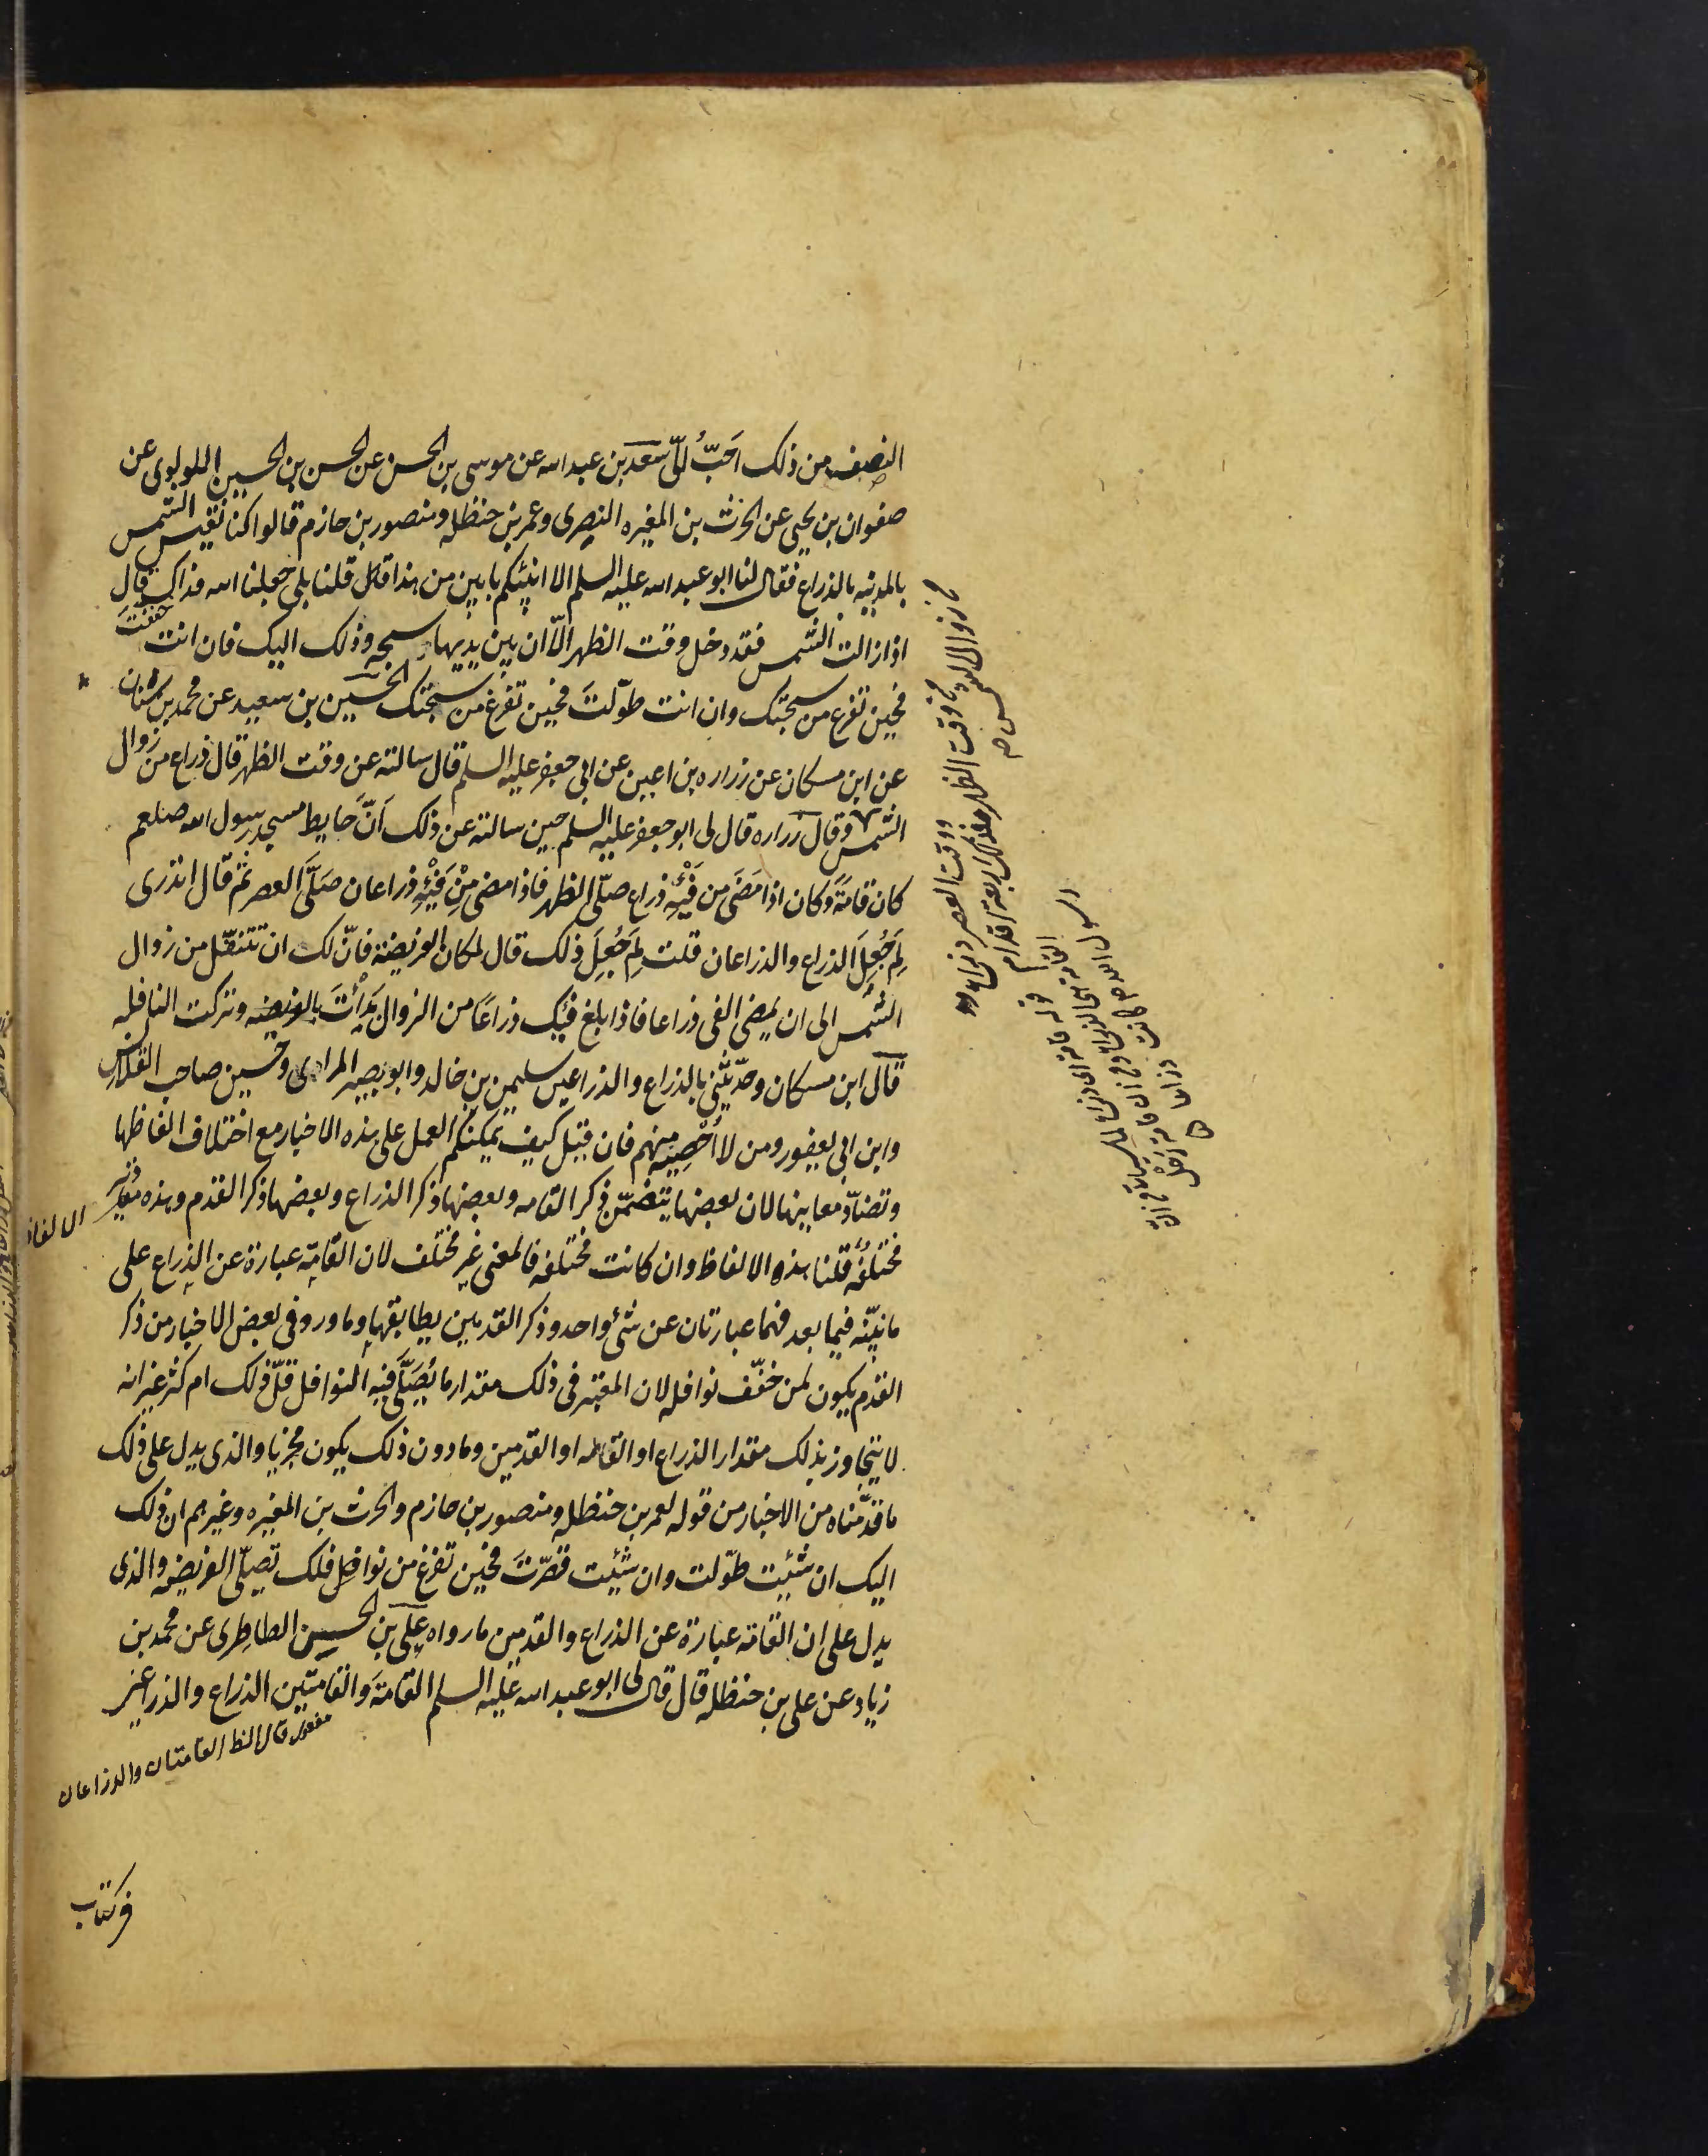 النصف من ذلک احَبّ الىّ سعد بن عبد الله عن موسى بن الحسن عن الحسن بن الحسين اللولوى عن
صفوان بن يحيى عن الحرث بن المغيره النصرى وعمر بن حنظله ومنصور بن حازم قالوا كنا نقيس الشمس
بالمدينه بالذراع فقال لنا ابو عبد الله عليه السلم الا انبئكم بابين من هذا قال قلنا بلى جعلنا الله فداک قال
اذا زالت الشمس فقد دخل وقت الظهر الّا ان بين يديها سبحه وذلک اليک فان انت خففتَ
فحين تفرغ من سبحتک وان انت طوّلتَ فحين تفرغ من سبحتک الحسين بن سعيد عن محمد بن سنان
عن ابن مسكان عن زراره بن اعين عن ابى جعفر عليه السلم قال سالته عن وقت الظهر قال ذراع من زوال
الشمس وقال زراره قال لى ابو جعفر عليه السلم حين سالته عن ذلک اَنَّ حايط مسجد رسول الله صلعم
كان قامةً وكان اذا مَضَى من فَيْئِهِ ذراع صلّى الظهر فاذا مضى مِنْ فَيْئِهِ ذراعان صَلَّى العصر ثم قال اتدرى
لِمَ جُعِلَ الذراع والذراعان قلت لِمَ جُعِلَ ذلک قال لمكان الفريضة فانّ لک ان تتنفّل من زوال
الشمس الى ان يمضى الفى ذراعا فاذا بلغ فيئک ذراعًا من الزوال بَدَأْتَ بالفريضه وتركت النافله
قال ابن مسكان وحدّثنى بالذراع والذراعين سليمن بن خالد وابو بصير المرادى وحسين صاحب القلانس
وابن ابى يعفور ومن لا اُحْصِيه منهم فان قيل كيف يمكنكم العمل على هذه الاخبار مع اختلاف الفاظها
وتضادّ معانيها لان بعضها يتضمّن ذكر القامه وبعضها ذكر الذراع وبعضها ذكر القدم وهذه مقادير
الالفاظ
مختلفه قلنا هذه الالفاظ وان كانت مختلفه فالمعنى غير مختلف لان القامة عبارة عن الذراع على
ما نبيّنه فيما بعد فهما عبارتان عن شئ واحد وذكر القدمين يطابقها وما ورد فى بعض الاخبار من ذكر
القدم يكون لمن خفّف نوافله لان المعتبر فى ذلک مقدار ما يُصَلَّى فيه النوافل قلّ ذلک ام كثر غير انه
لا يتجاوز بذلک مقدار الذراع او القامه او القدمين وما دون ذلک يكون مجزيا والذى يدل على ذلک
ما قدّمناه من الاخبار من قوله لعمر بن حنظله ومنصور بن حازم والحرث بن المغيره وغيرهم ان ذلک
اليک ان شئيت طوّلت وان شئيت قصّرتَ فحين تفرغ من نوافلک تصلّى الفريضه والذى
يدل على ان القامه عبارة عن الذراع والقدمين ما رواه على بن الحسين الطاطرى عن محمد بن
زياد عن على بن حنظله قال قال لى ابو عبد الله عليه السلم القامة والقامتين الذراع والذراعين
مفعول قال الظ القامتان والذراعان
فى كتاب